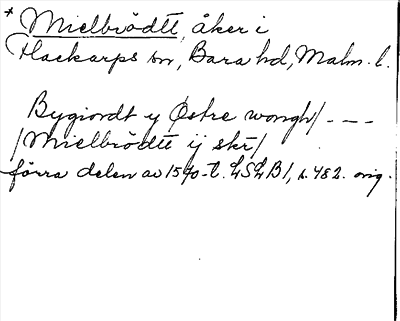 * Mielbrödtt, åker i
Flackarps sn, Bara hd, Malm. l.
Bygiordt y Østre wongh/ - - -
/Mielbrödtt ij skr/
förra delen av 1590-t. LSLB 1, s. 482. orig.